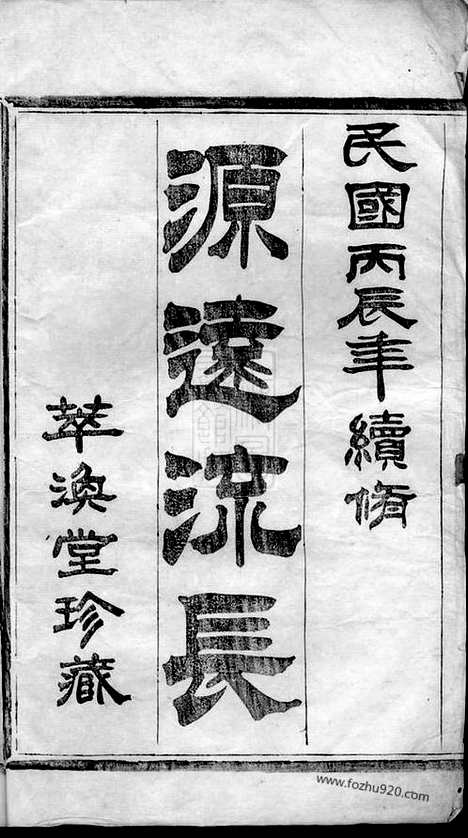 民國丙辰年續脩
源遠流長
萃渙堂珍藏
www.fozhu920.com